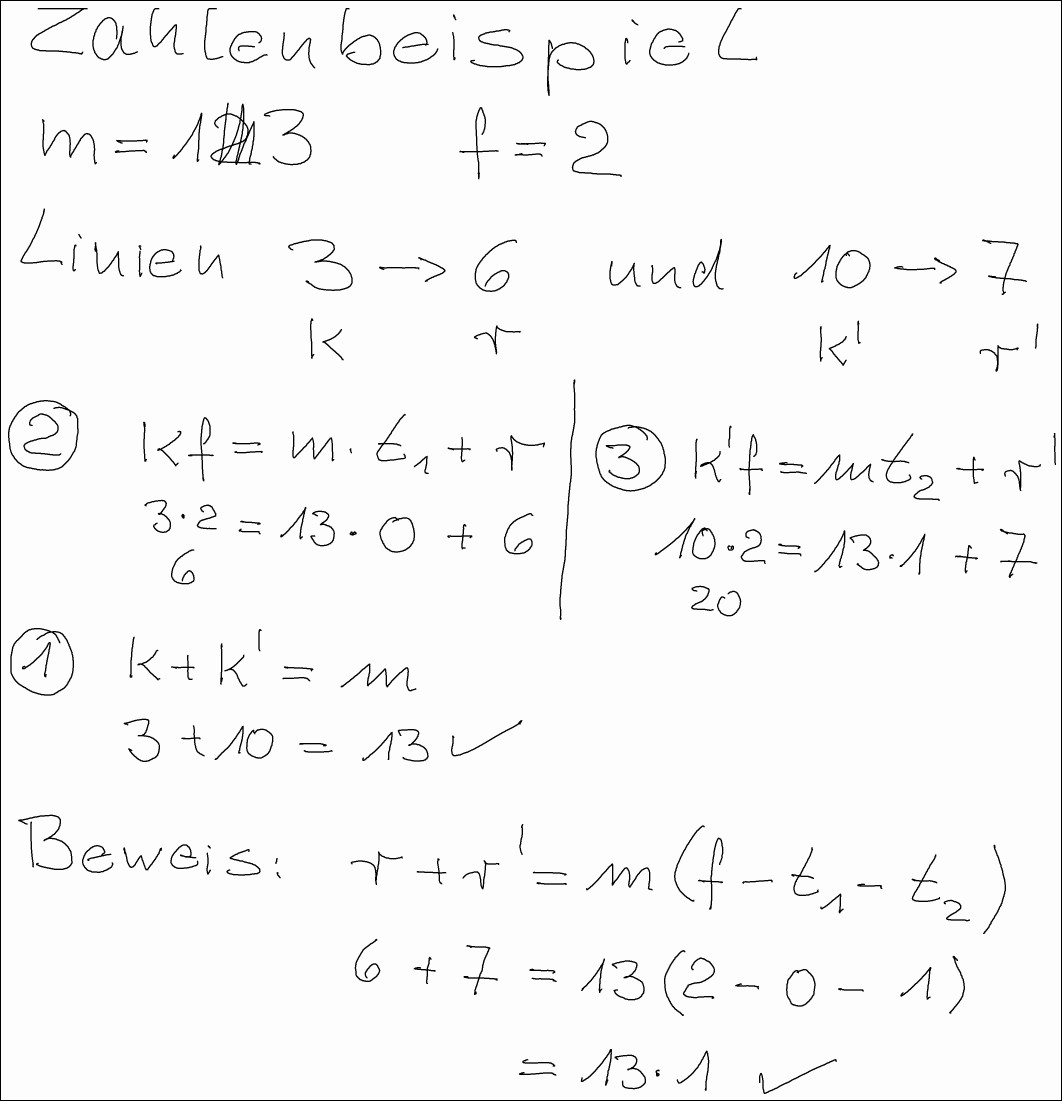 Zahlenbeispiel
m = 13 f = 2
Linien 3 → 6 und 10 → 7
k r k' r'
② kf = m · t₁ + r
3·2 = 13 · 0 + 6
6
③ k'f = mt₂ + r'
10·2 = 13·1 + 7
20
① k + k' = m
3 + 10 = 13 ✓
Beweis: r + r' = m(f - t₁ - t₂)
6 + 7 = 13(2 - 0 - 1)
= 13·1 ✓